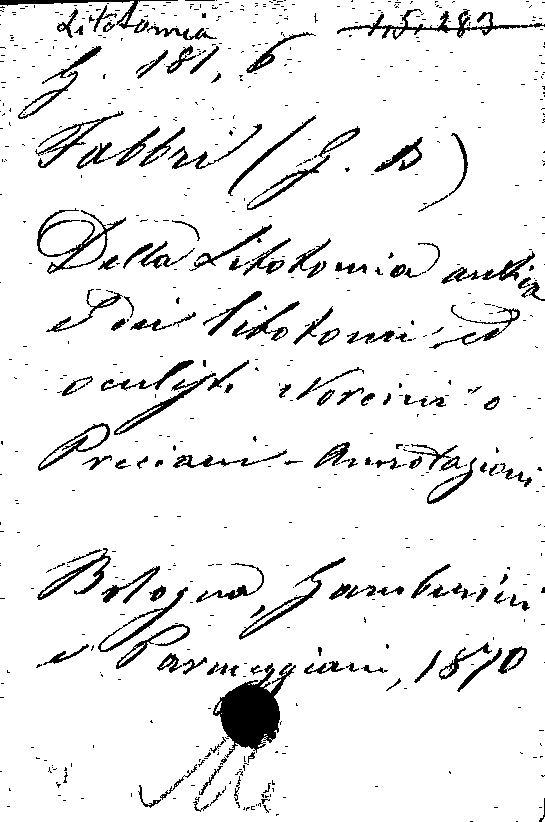 Litotomia 1,5,283
G. 181, 6
Fabbri (G. B)
Della Litotomia antica
e dei litotomi ed
oculisti Norcini o
Preciani - Annotazioni
Bologna, Gamberini
e Parmeggiani, 1870
Me